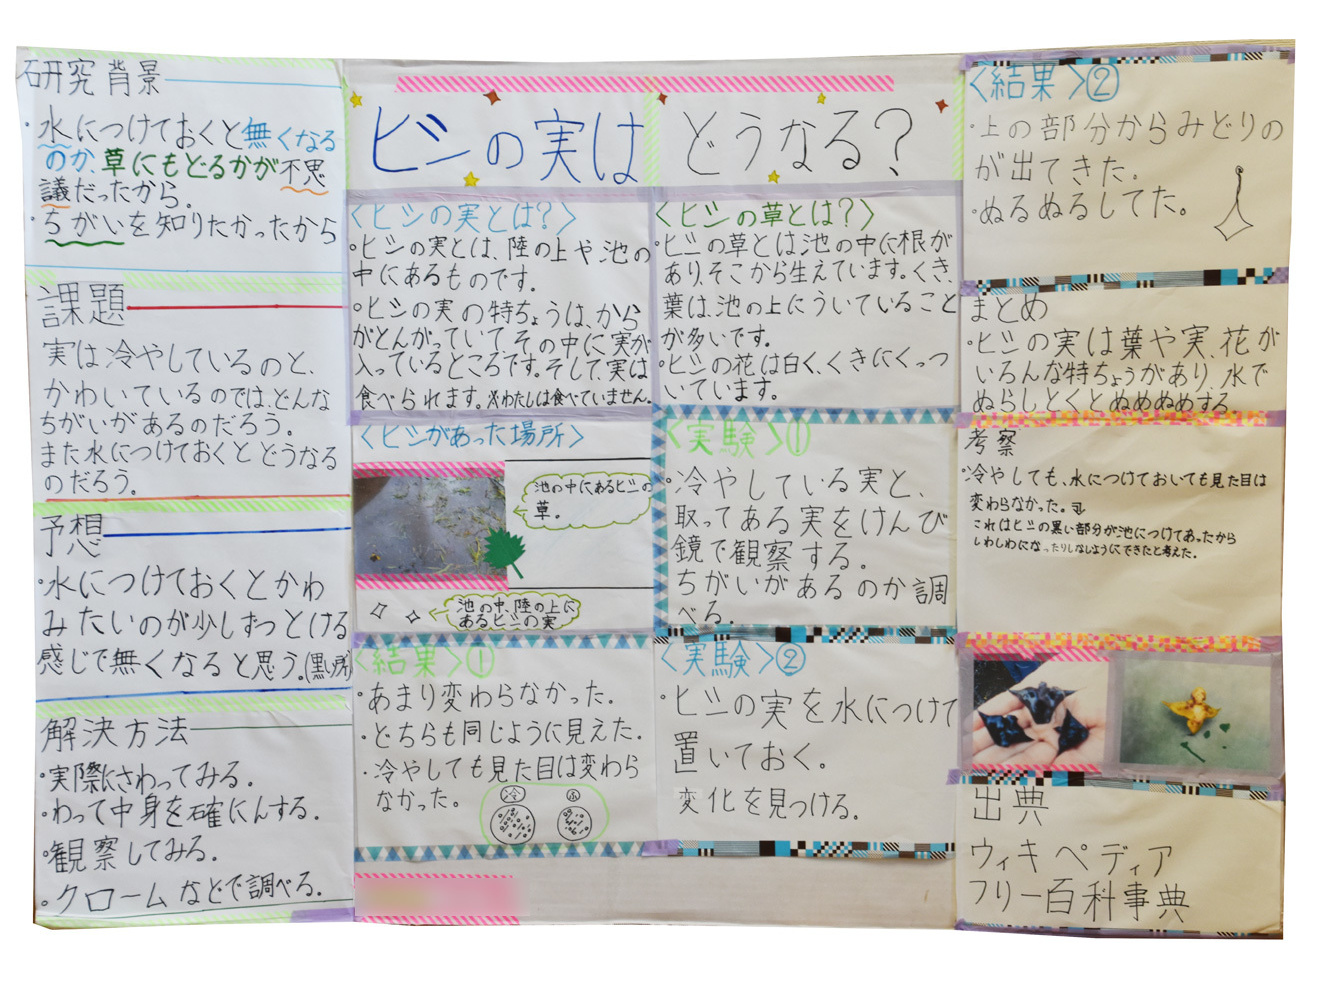 研究背景
・水につけておくと無くなる
のか、草にもどるかが不思
議だったから。
・ちがいを知りたかったから
課題
実は冷やしているのと、
かわいているのでは、どんな
ちがいがあるのだろう。
また水につけておくとどうなる
のだろう。
予想
・水につけておくとかわ
みたいのが少しずつとける
感じで無くなると思う。(黒い所)
解決方法
・実際にさわってみる。
・わって中身を確にんする。
・観察してみる。
・クロームなどで調べる。
ヒシの実はどうなる?
〈ヒシの実とは?〉
・ヒシの実とは、陸の上や池の
中にあるものです。
・ヒシの実の特ちょうは、から
がとんがっていてその中に実が
入っているところです。そして、実は
食べられます。※わたしは食べていません。
〈ヒシの草とは?〉
・ヒシの草とは池の中に根が
あり、そこから生えています。くき、
葉は、池の上にういていること
が多いです。
・ヒシの花は白く、くきにくっつ
いています。
〈ヒシがあった場所〉
池の中にあるヒシの
草。
池の中、陸の上に
あるヒシの実
〈実験〉①
・冷やしている実と、
取ってある実をけんび
鏡で観察する。
ちがいがあるのか調
べる。
〈結果〉①
・あまり変わらなかった。
・どちらも同じように見えた。
・冷やしても見た目は変わら
なかった。
冷
〈実験〉②
・ヒシの実を水につけて
置いておく。
変化を見つける。
〈結果〉②
・上の部分からみどりの
が出てきた。
・ぬるぬるしてた。
まとめ
・ヒシの実は葉や実、花が
いろんな特ちょうがあり、水で
ぬらしとくとぬめぬめする
考察
・冷やしても、水につけておいても見た目は
変わらなかった。
これはヒシの黒い部分が池につけてあったから
しわしわになったりしなしようにできたと考えた。
出典
ウィキペディア
フリー百科事典